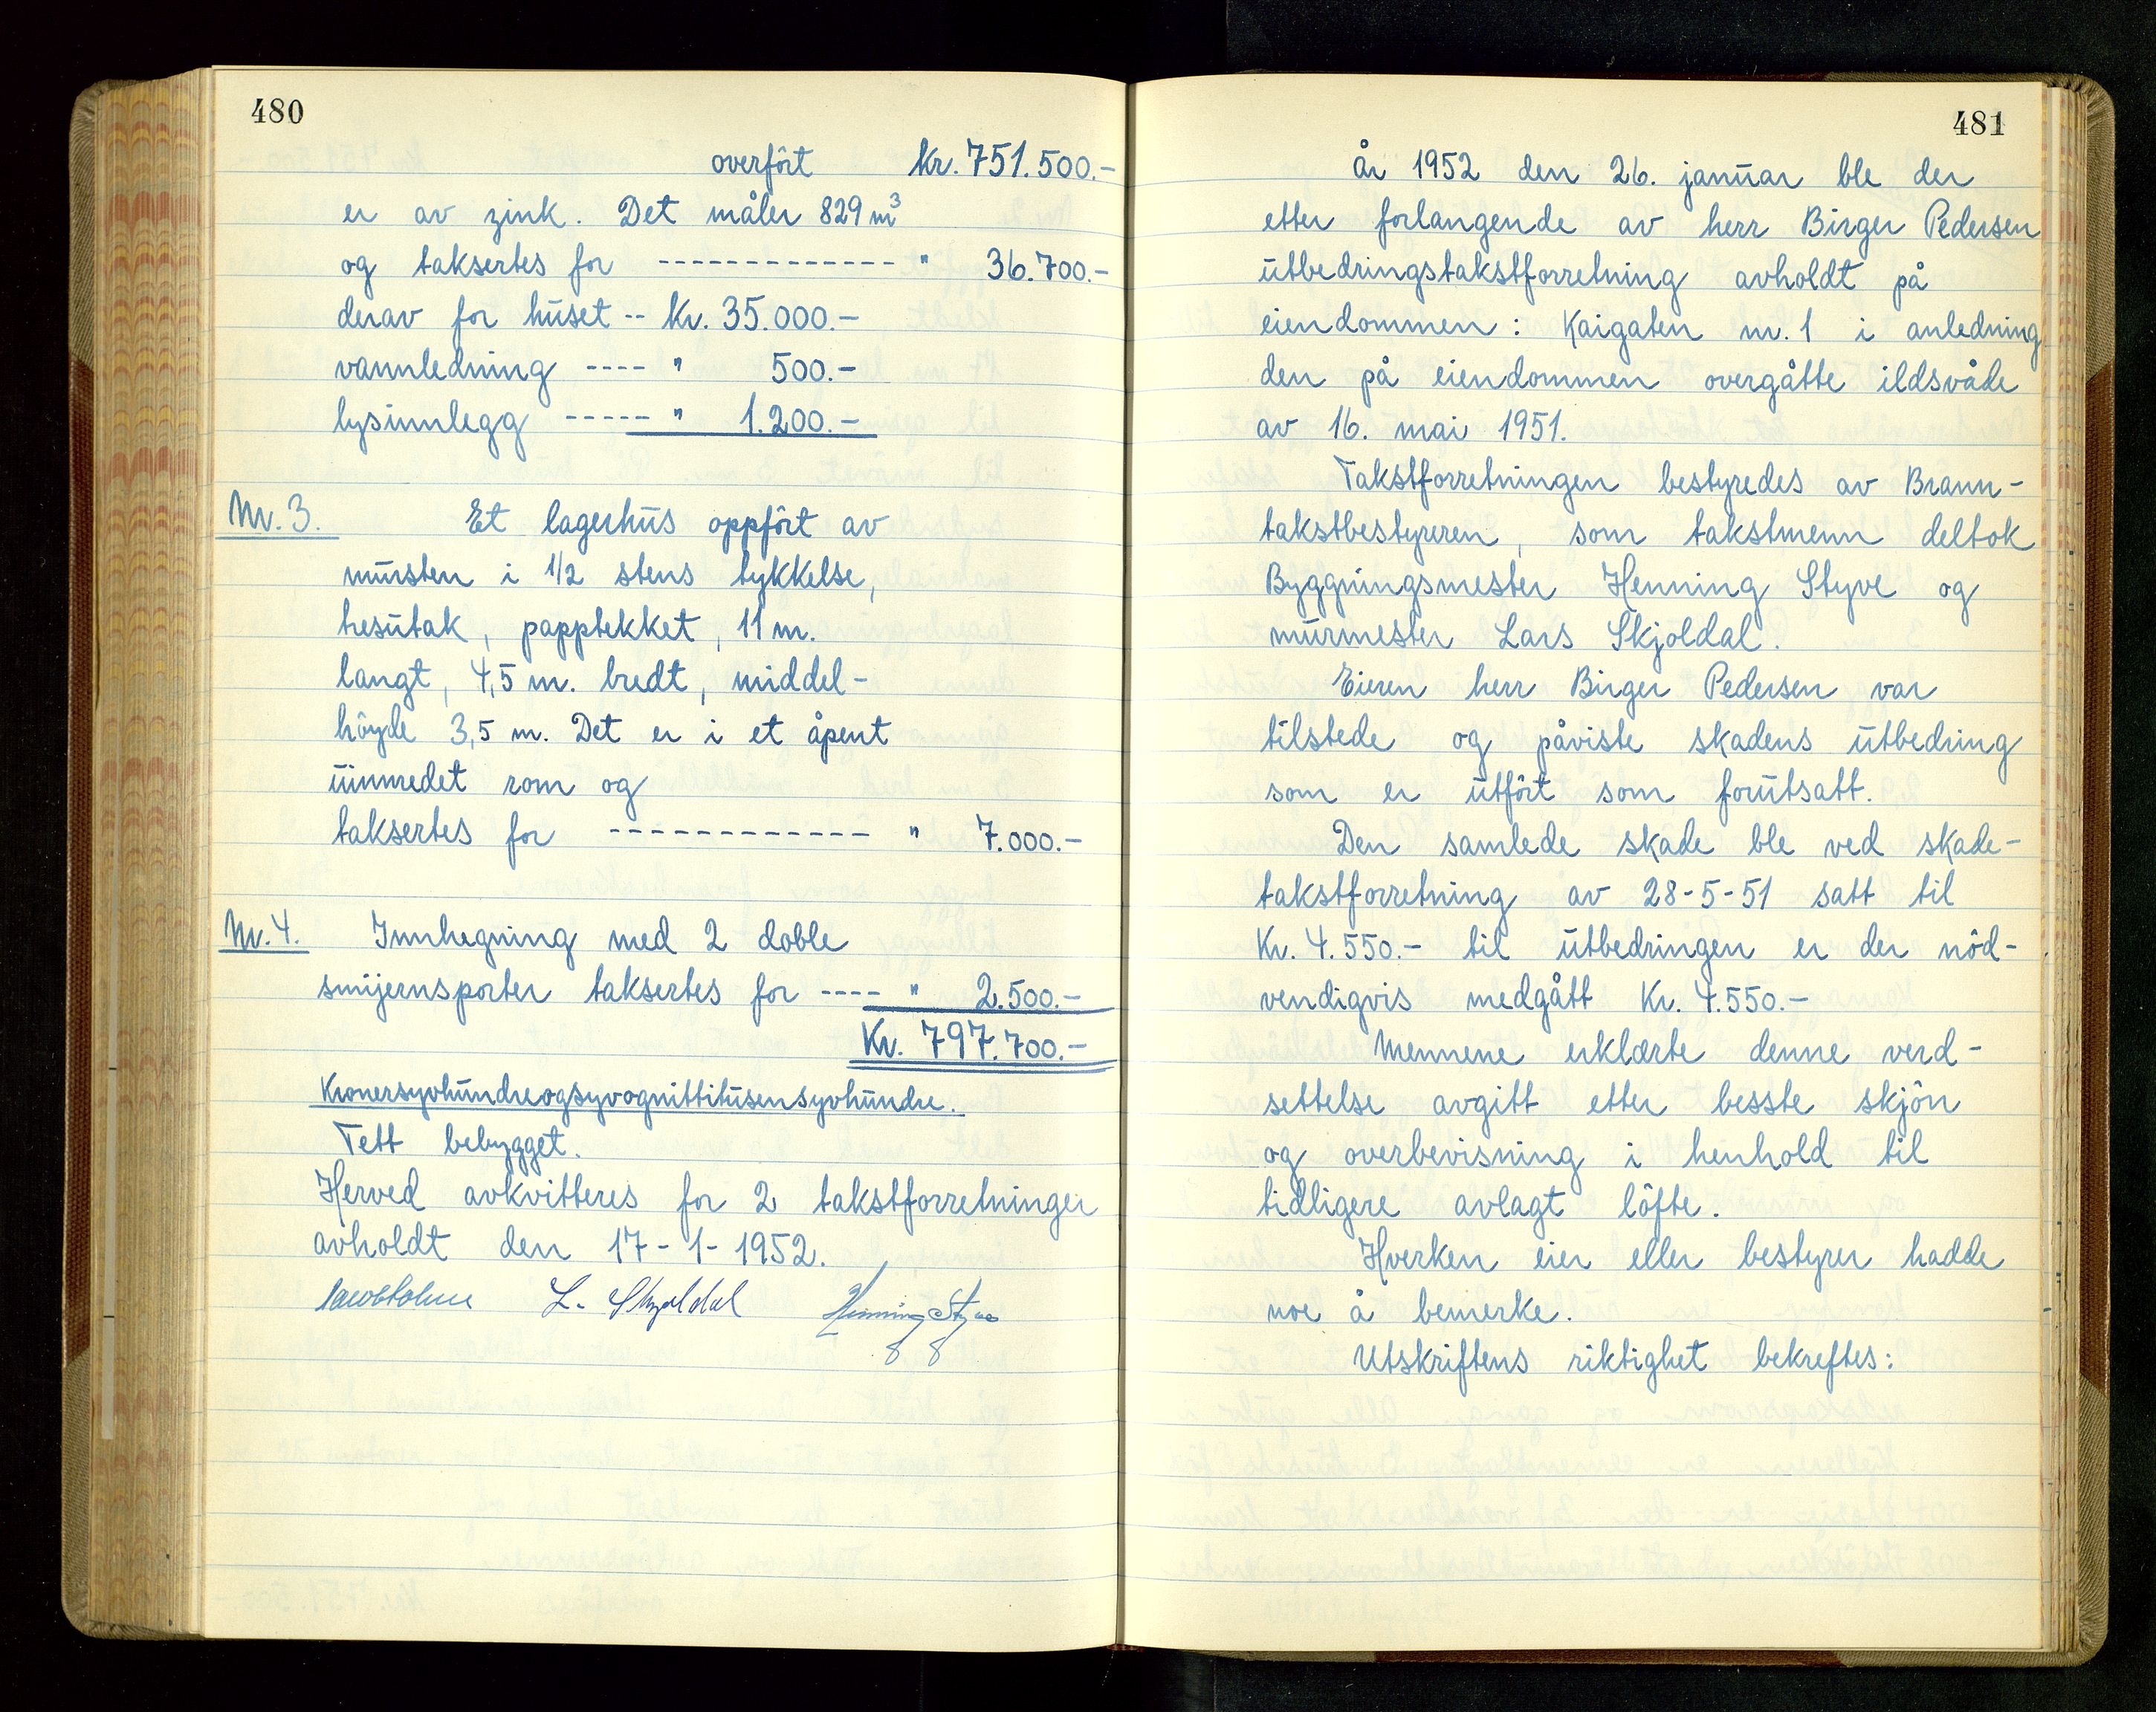 480
overført kr. 751.500.-
er av zink. Det måler 829 m³
og taksertes for ------------- " 36.700.-
derav for huset -- Kr. 35.000.-
vannledning ---- " 500.-
lysinnlegg ----- " 1.200.-
Nr. 3. Et lagerhus oppført av
mursten i 1/2 stens tykkelse,
hesutak, papptekket, 11 m.
langt, 4,5 m. bredt, middel-
høyde 3,5 m. Det er i et åpent
uinnredet rom og
taksertes for ------------- " 7.000.-
Nr. 4. Innhegning med 2 doble
smijernsporter taksertes for ---- " 2.500.-
Kr. 797.700.-
Kronersyvhundreogsyvognittitusensyvhundre.
Tett bebygget.
Herved avkvitteres for 2 takstforretninger
avholdt den 17-1-1952.
L. Skjoldal Henning Styve
481
År 1952 den 26. januar ble der
etter forlangende av herr Birger Pedersen
utbedringstakstforretning avholdt på
eiendommen: Kaigaten nr. 1 i anledning
den på eiendommen overgåtte ildsvåde
av 16. mai 1951.
Takstforretningen bestyredes av Brann-
takstbestyreren, som takstmenn deltok
Byggningsmester Henning Styve og
murmester Lars Skjoldal.
Eieren herr Birger Pedersen var
tilstede og påviste skadens utbedring
som er utført som forutsatt.
Den samlede skade ble ved skade-
takstforretning av 28-5-51 satt til
Kr. 4.550.- til utbedringen er der nød-
vendigvis medgått Kr. 4.550.-
Mennene erklærte denne verd-
settelse avgitt etter besste skjøn
og overbevisning i henhold til
tidligere avlagt løfte.
Hverken eier eller bestyrer hadde
noe å bemerke.
Utskriftens riktighet bekreftes: